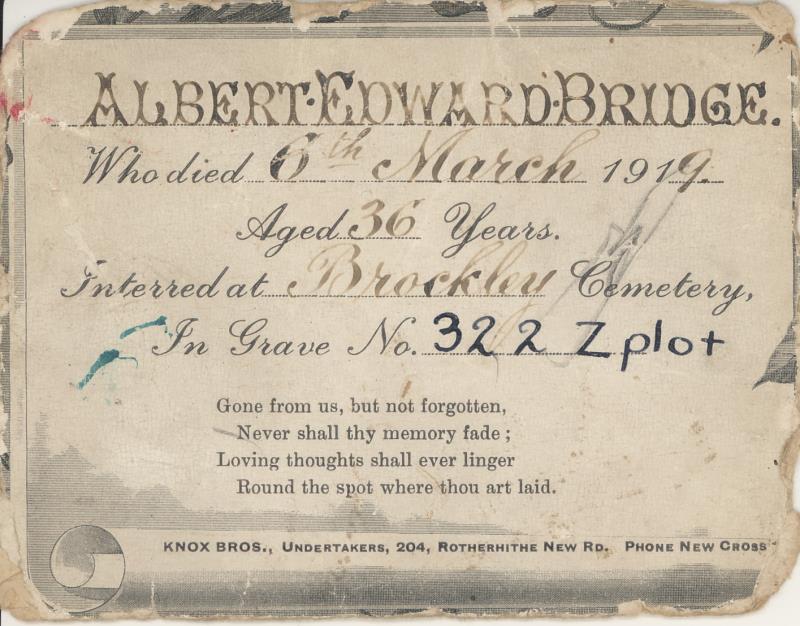 ALBERT·EDWARD·BRIDGE.
Who died 6th March 1919.
Aged 36 Years.
Interred at Brockley Cemetery,
In Grave No. 322 Z plot
Gone from us, but not forgotten,
Never shall thy memory fade;
Loving thoughts shall ever linger
Round the spot where thou art laid.
KNOX BROS., UNDERTAKERS, 204, ROTHERHITHE NEW RD. PHONE NEW CROSS